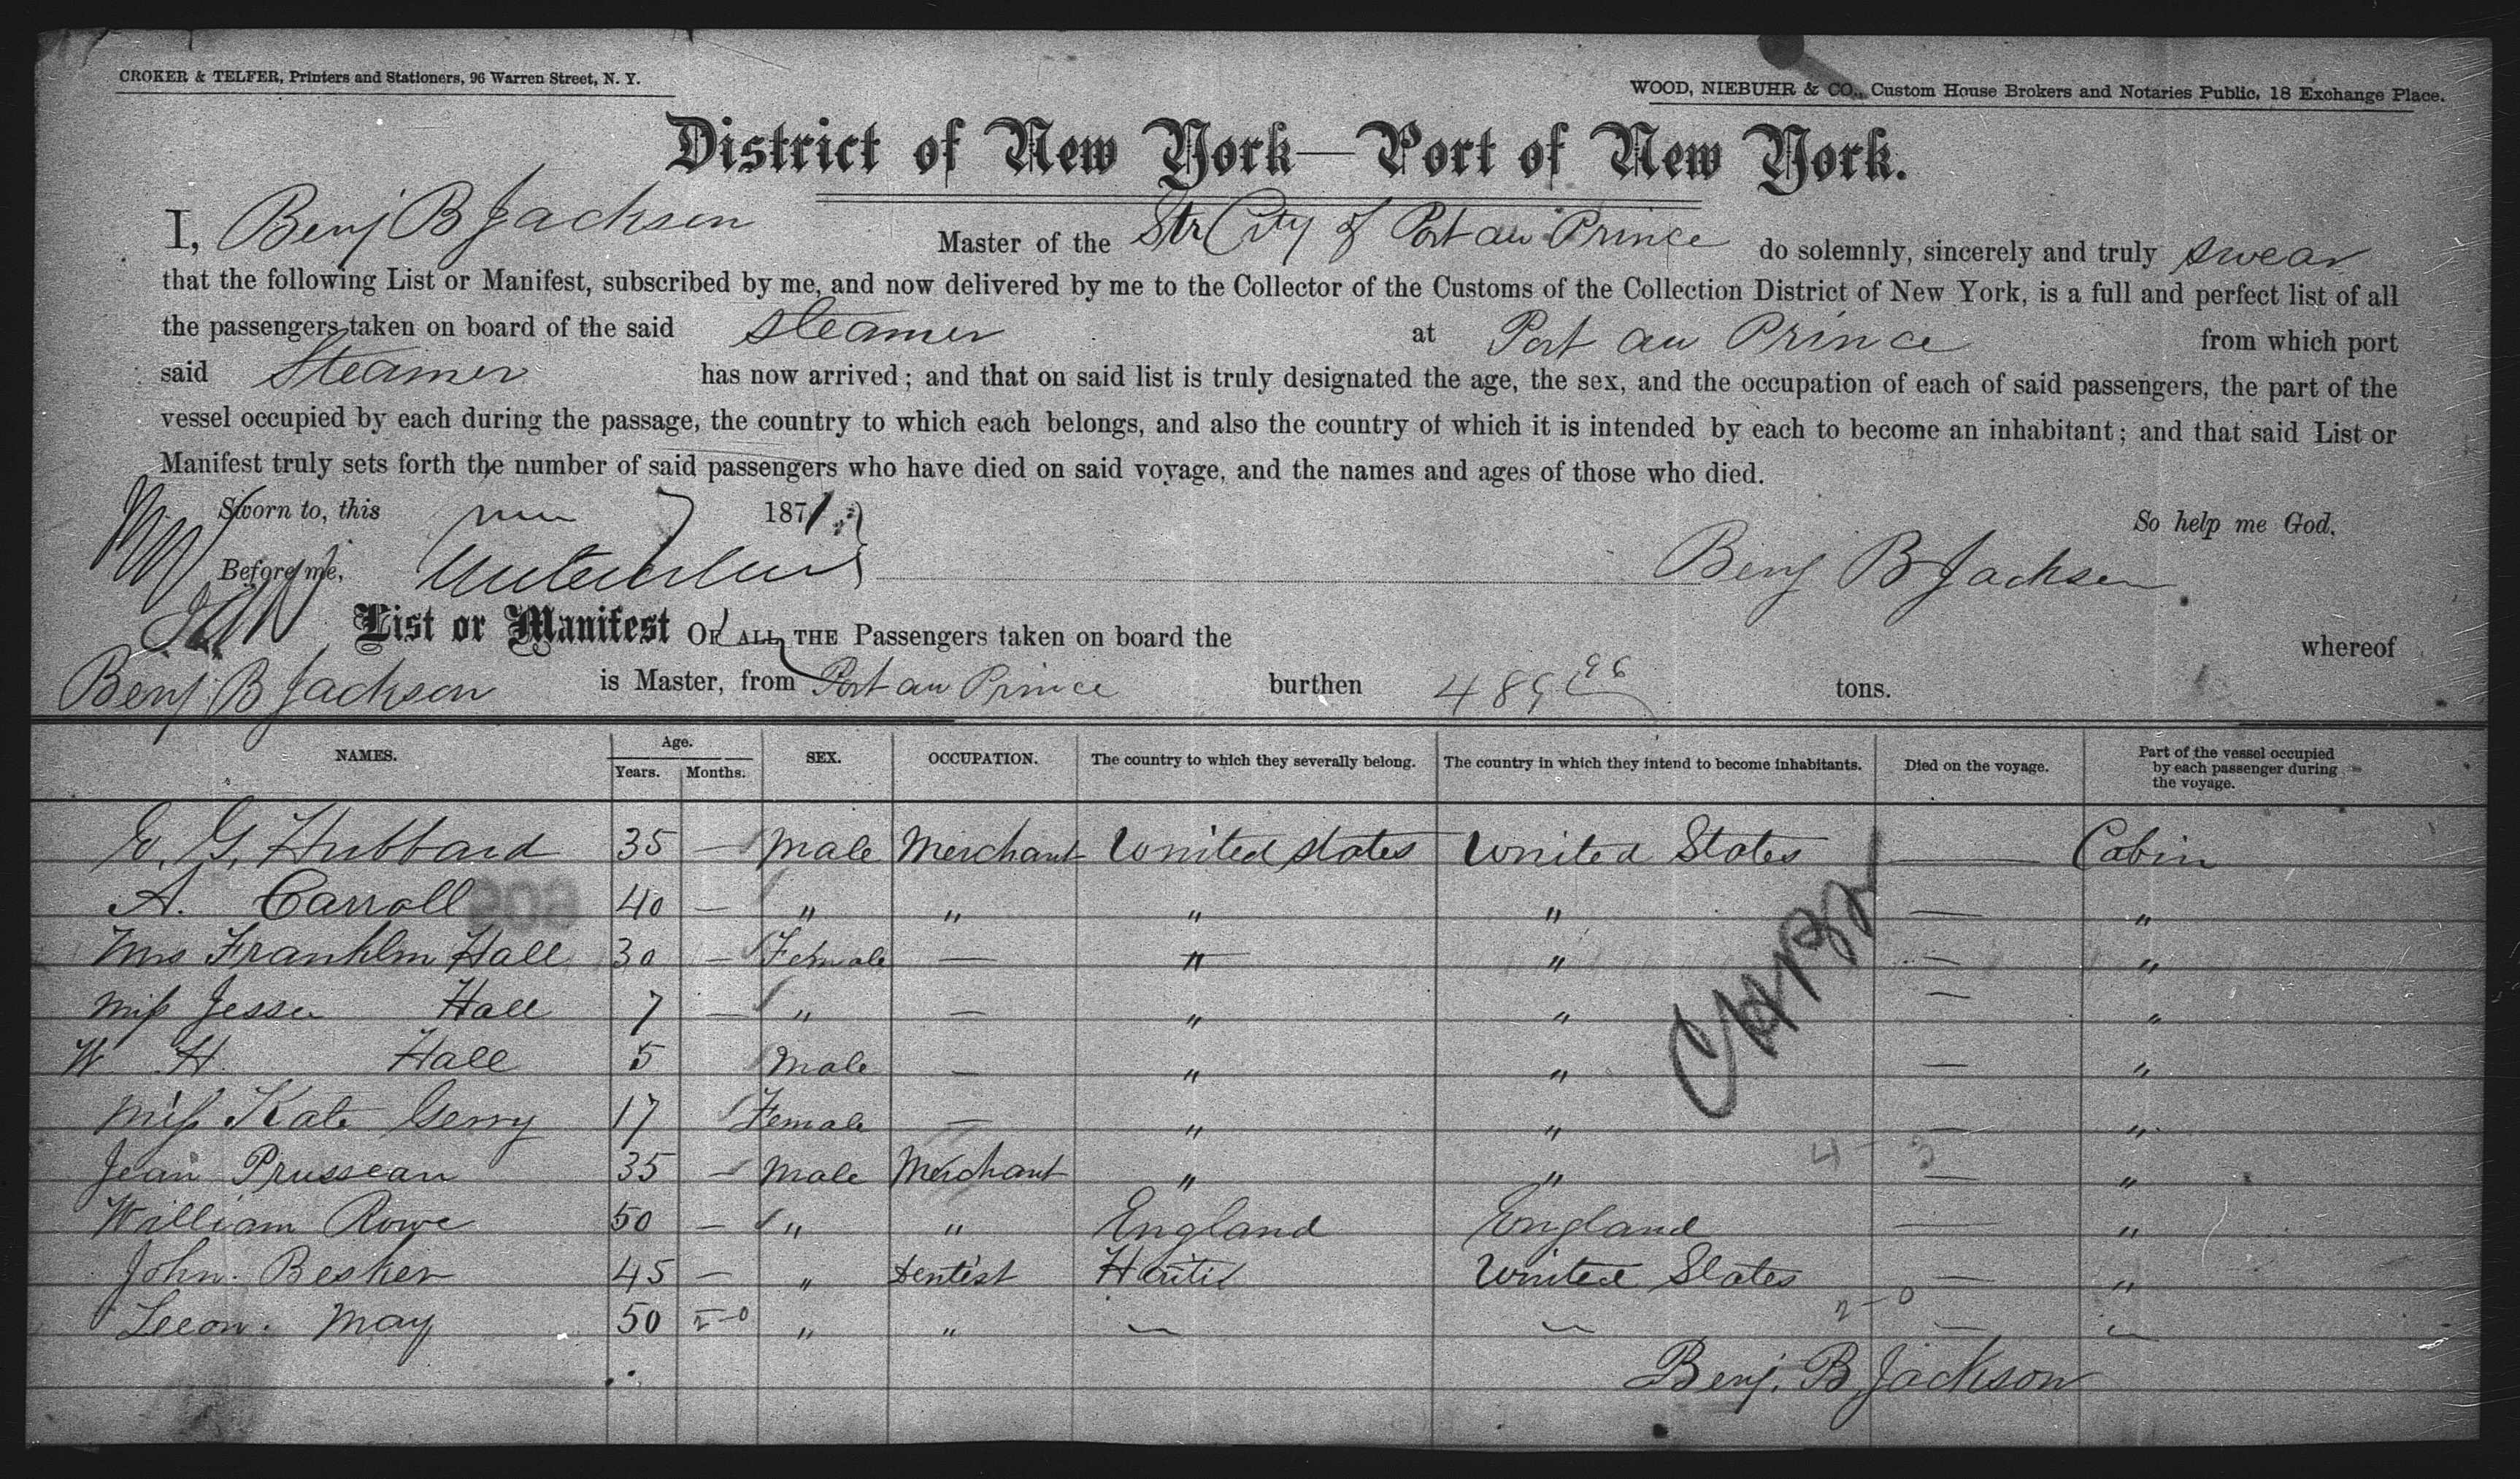 CROKER & TELFER, Printers and Stationers, 96 Warren Street, N. Y.
WOOD, NIEBUHR & CO., Custom House Brokers and Notaries Public, 18 Exchange Place.
District of New York—Port of New York.
I, Benj B Jackson Master of the Str City of Port au Prince do solemnly, sincerely and truly swear
that the following List or Manifest, subscribed by me, and now delivered by me to the Collector of the Customs of the Collection District of New York, is a full and perfect list of all
the passengers taken on board of the said steamer at Port au Prince from which port
said Steamer has now arrived; and that on said list is truly designated the age, the sex, and the occupation of each of said passengers, the part of the
vessel occupied by each during the passage, the country to which each belongs, and also the country of which it is intended by each to become an inhabitant; and that said List or
Manifest truly sets forth the number of said passengers who have died on said voyage, and the names and ages of those who died.
Sworn to, this 7 1871. So help me God,
Before me, Benj B Jackson
List or Manifest OF ALL THE Passengers taken on board the whereof
Benj B Jackson is Master, from Port au Prince burthen 489 96 tons.
NAMES. Age. Years. Months. SEX. OCCUPATION. The country to which they severally belong. The country in which they intend to become inhabitants. Died on the voyage. Part of the vessel occupied by each passenger during the voyage.
E. G. Hubbard 35 — Male Merchant United States United States — Cabin
A. Carroll 40 — " " " " — "
Mrs Franklin Hall 30 — Female — " " — "
Miss Jessie Hall 7 — " — " " — "
W H Hall 5 Male — " " — "
Miss Kate Gerry 17 Female — " " — "
Jean Prussean 35 — Male Merchant " " — "
William Rowe 50 — " " England England — "
John Besker 45 — " Dentist Haiti United States — "
Leeon. May 50 " " " " — "
Benj. B Jackson